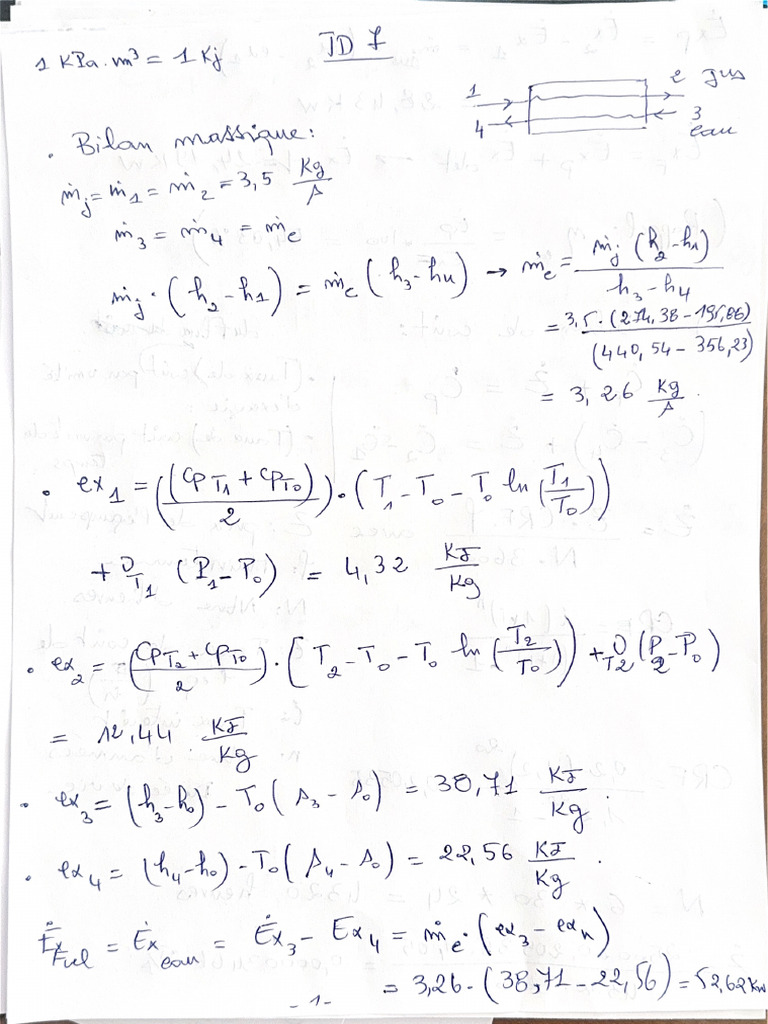 TD 7
1 KPa.m³ = 1 Kj
1 2 jus
4 3
eau
. Bilan massique:
ṁj = ṁ1 = ṁ2 = 3,5 Kg/s
ṁ3 = ṁ4 = ṁe
ṁj · (h2 - h1) = ṁe (h3 - h4) → ṁe = ṁj (h2 - h1) / h3 - h4
= 3,5 · (274,38 - 195,06) / (440,54 - 356,23)
= 3,26 Kg/s .
. ex1 = ((CpT1 + CpT0) / 2) · (T1 - T0 - T0 ln (T1/T0))
+ υT1 (P1 - P0) = 4,32 KJ/Kg
. ex2 = ((CpT2 + CpT0) / 2) · (T2 - T0 - T0 ln (T2/T0)) + υT2 (P2 - P0)
= 12,44 KJ/Kg
. ex3 = (h3 - h0) - T0 (s3 - s0) = 38,71 KJ/Kg .
. ex4 = (h4 - h0) - T0 (s4 - s0) = 22,56 KJ/Kg .
ĖxFuel = Ėxeau = Ėx3 - Ex4 = ṁe · (ex3 - ex4)
= 3,26 · (38,71 - 22,56) = 52,62 Kw
- 1 -